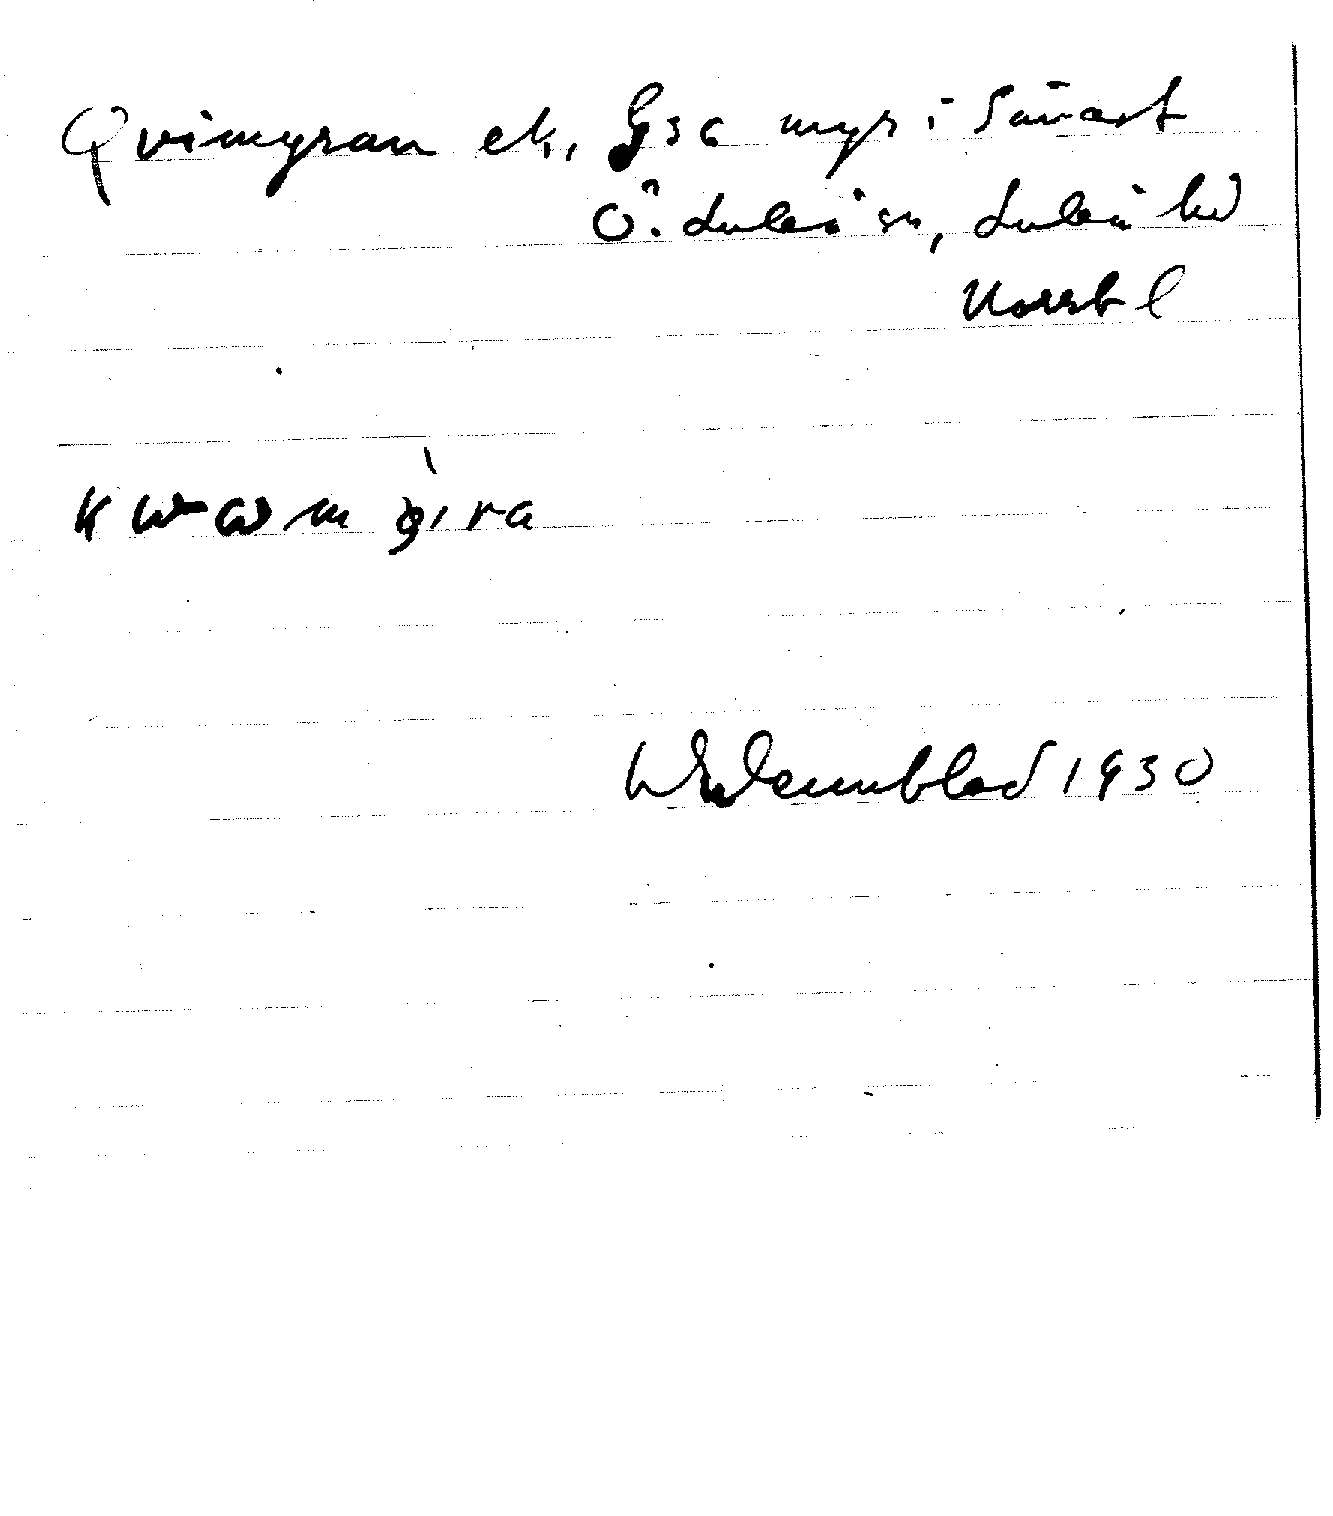 Qvimyran ek, G3c myr i Sävast
Ö. Luleå sn, Luleå hd
Norrb l
W E Wennblad 1930